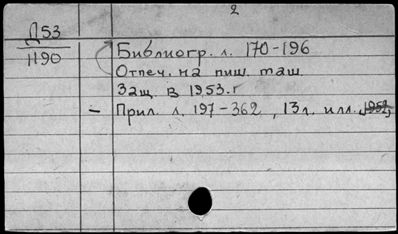 2
Д53
1190
Библиогр. л. 170-196
Отпеч. на пиш. таш.
Защ. в 1953.г
– Прил. л. 197-362, 13 л. илл.